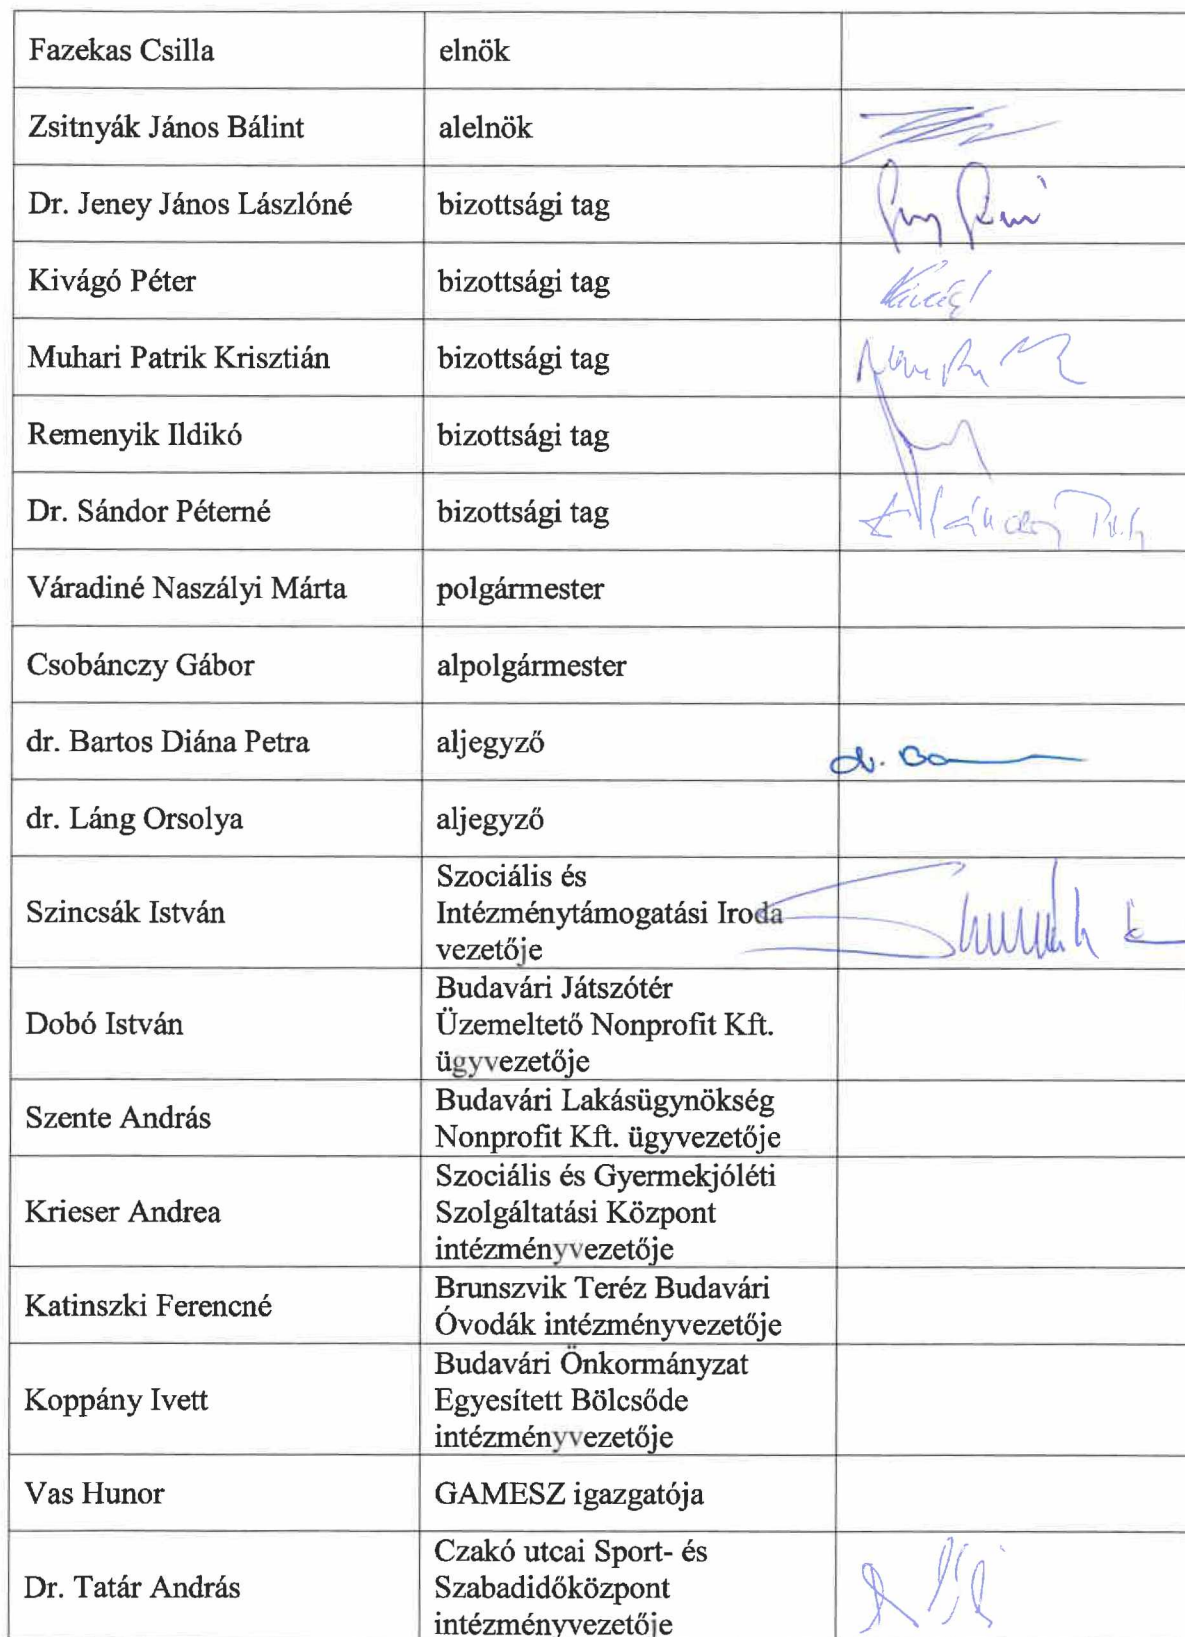 Fazekas Csilla elnök
Zsitnyák János Bálint alelnök
Dr. Jeney János Lászlóné bizottsági tag
Kivágó Péter bizottsági tag
Muhari Patrik Krisztián bizottsági tag
Remenyik Ildikó bizottsági tag
Dr. Sándor Péterné bizottsági tag
Váradiné Naszályi Márta polgármester
Csobánczy Gábor alpolgármester
dr. Bartos Diána Petra aljegyző
dr. Láng Orsolya aljegyző
Szincsák István
Szociális és
Intézménytámogatási Iroda
vezetője
Dobó István
Budavári Játszótér
Üzemeltető Nonprofit Kft.
ügyvezetője
Szente András
Budavári Lakásügynökség
Nonprofit Kft. ügyvezetője
Krieser Andrea
Szociális és Gyermekjóléti
Szolgáltatási Központ
intézményvezetője
Katinszki Ferencné
Brunszvik Teréz Budavári
Óvodák intézményvezetője
Koppány Ivett
Budavári Önkormányzat
Egyesített Bölcsőde
intézményvezetője
Vas Hunor GAMESZ igazgatója
Dr. Tatár András
Czakó utcai Sport- és
Szabadidőközpont
intézményvezetője